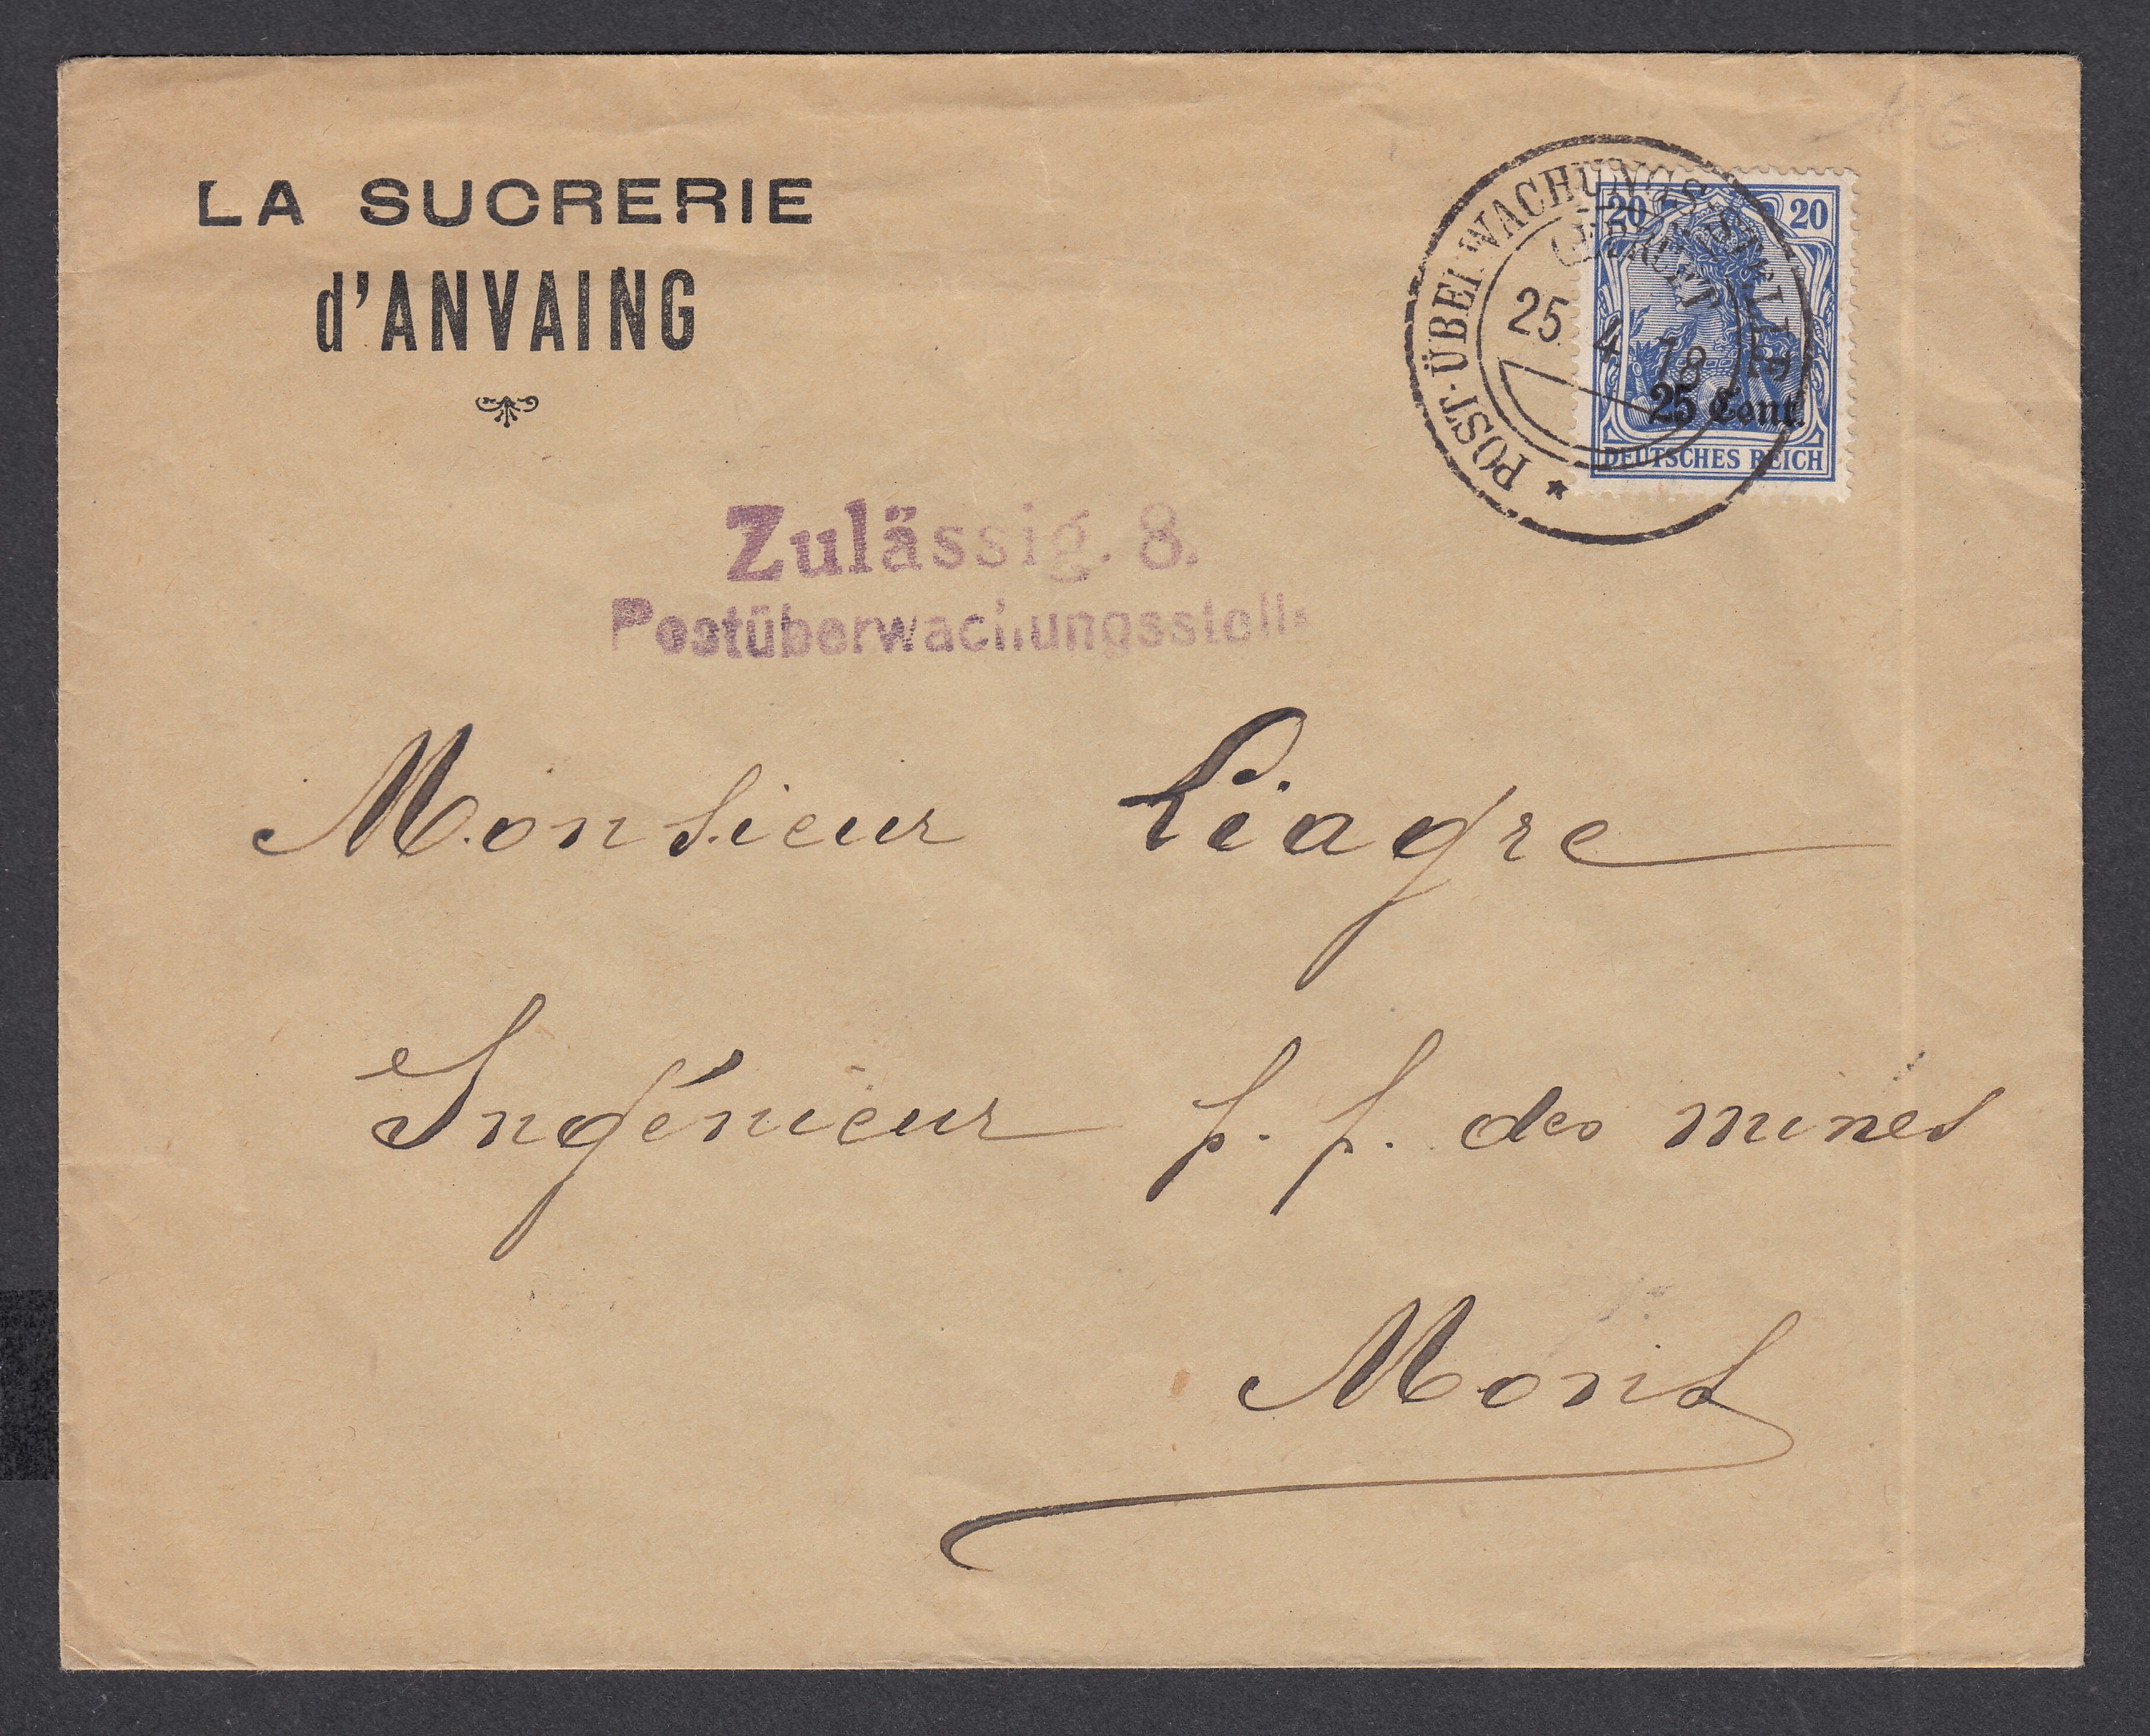 LA SUCRERIE
d'ANVAING
20 20
POST-ÜBERWACHUNGS-STELLE
GEPRÜFT
25 4 18
25 Cent.
DEUTSCHES REICH
Zulässig. 8.
Postüberwachungsstelle
Monsieur Liagre
Ingénieur f. f. des mines
Mons